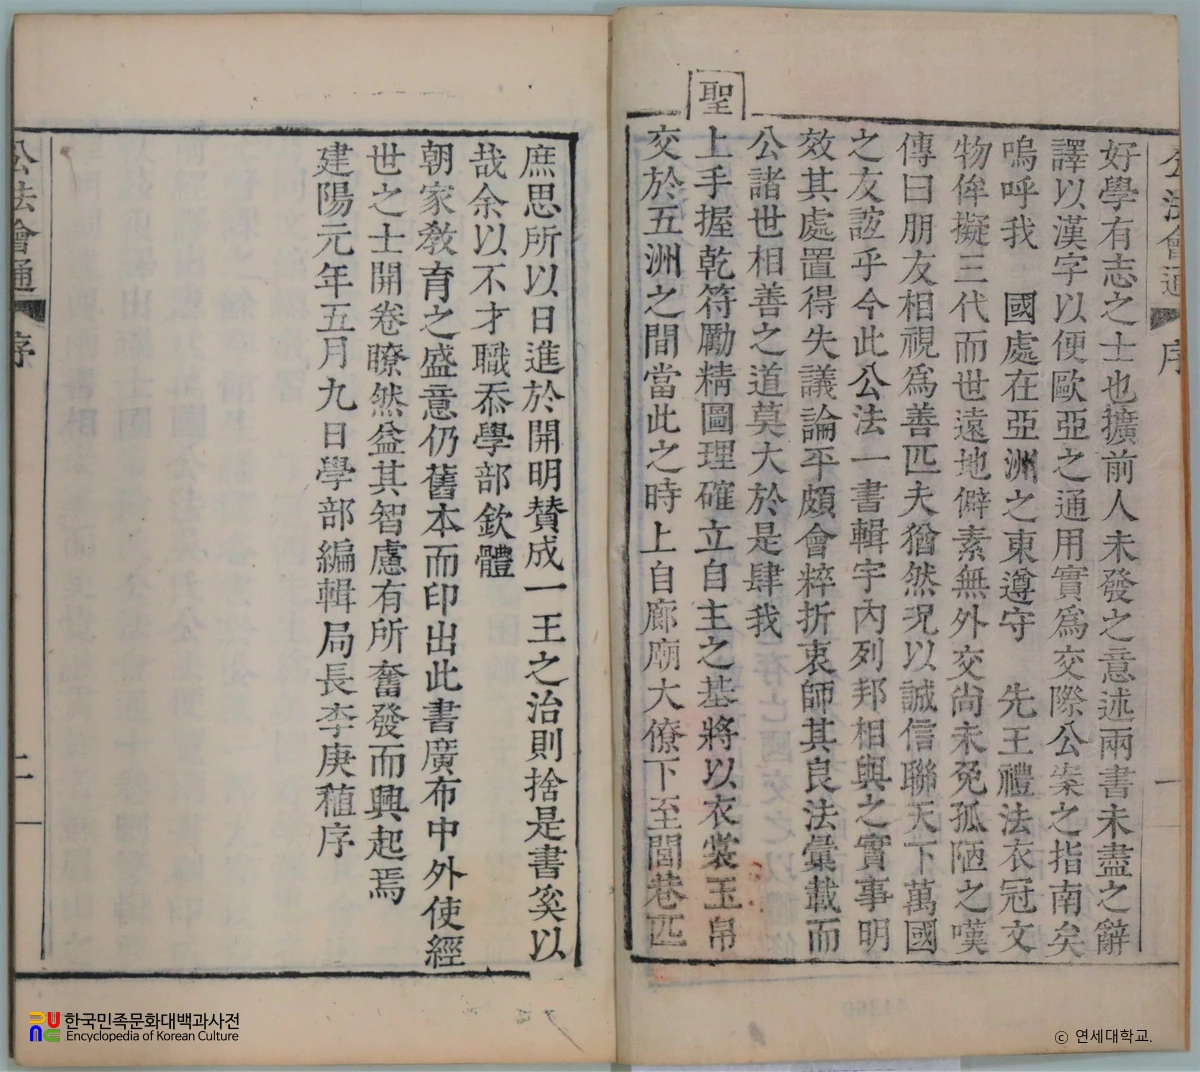 公法會通 序
一
好學有志之士也擴前人未發之意述兩書未盡之辭
譯以漢字以便歐亞之通用實爲交際公案之指南矣
嗚呼我　國處在亞洲之東遵守　先王禮法衣冠文
物侔擬三代而世遠地僻素無外交尙未免孤陋之嘆
傳曰朋友相視爲善匹夫猶然況以誠信聯天下萬國
之友誼乎今此公法一書輯宇內列邦相與之實事明
效其處置得失議論平頗會粹折衷師其良法彙載而
公諸世相善之道莫大於是肆我
聖
上手握乾符勵精圖理確立自主之基將以衣裳玉帛
交於五洲之間當此之時上自廊廟大僚下至閭巷匹
庶思所以日進於開明贊成一王之治則捨是書奚以
哉余以不才職忝學部欽體
朝家敎育之盛意仍舊本而印出此書廣布中外使經
世之士開卷暸然益其智慮有所奮發而興起焉
建陽元年五月九日學部編輯局長李庚稙序
公法會通 序
二
한국민족문화대백과사전
Encyclopedia of Korean Culture
ⓒ 연세대학교.